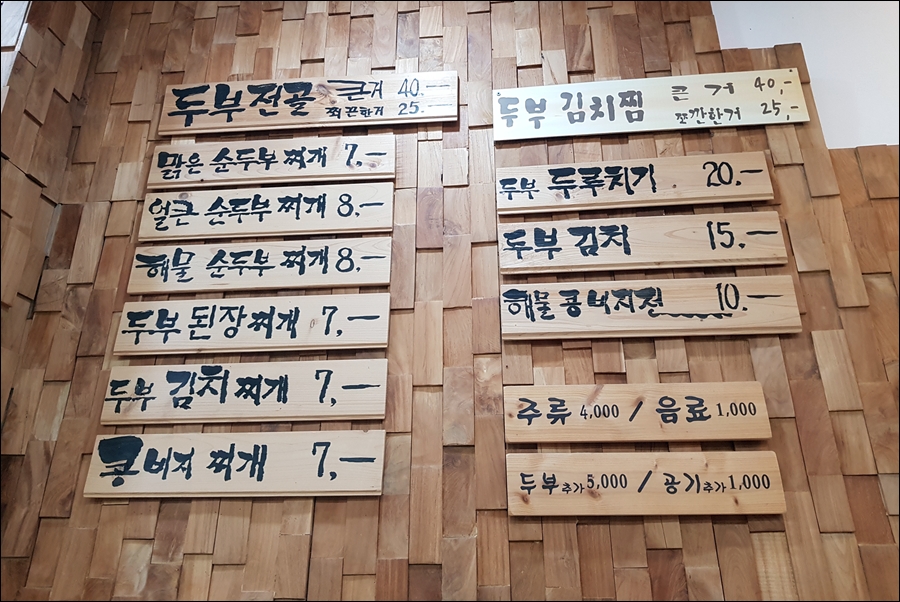 두부전골 큰거 40.-
쩍끈한거 25.-
맑은 순두부 찌개 7.-
얼큰 순두부 찌개 8.-
해물 순두부 찌개 8.-
두부 된장 찌개 7,-
두부 김치 찌개 7,-
콩비지 찌개 7,-
두부 김치찜 큰거 40,-
쪼깐한거 25,-
두부 두루치기 20.-
두부 김치 15.-
해물 콩비지전 10.-
주류 4,000 / 음료 1,000
두부추가 5,000 / 공기추가 1,000